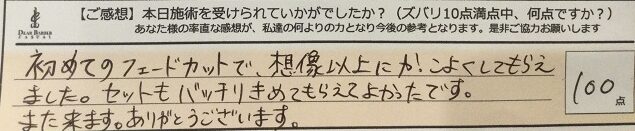 DEAR BARBER
CASUAL
【ご感想】本日施術を受けられていかがでしたか？（ズバリ10点満点中、何点ですか？）
あなた様の率直な感想が、私達の何よりの力となり今後の参考となります。是非ご協力お願いします
初めてのフェードカットで、想像以上にかっこよくしてもらえ
ました。セットもバッチリきめてもらえてよかったです。
また来ます。ありがとうございます。
100点